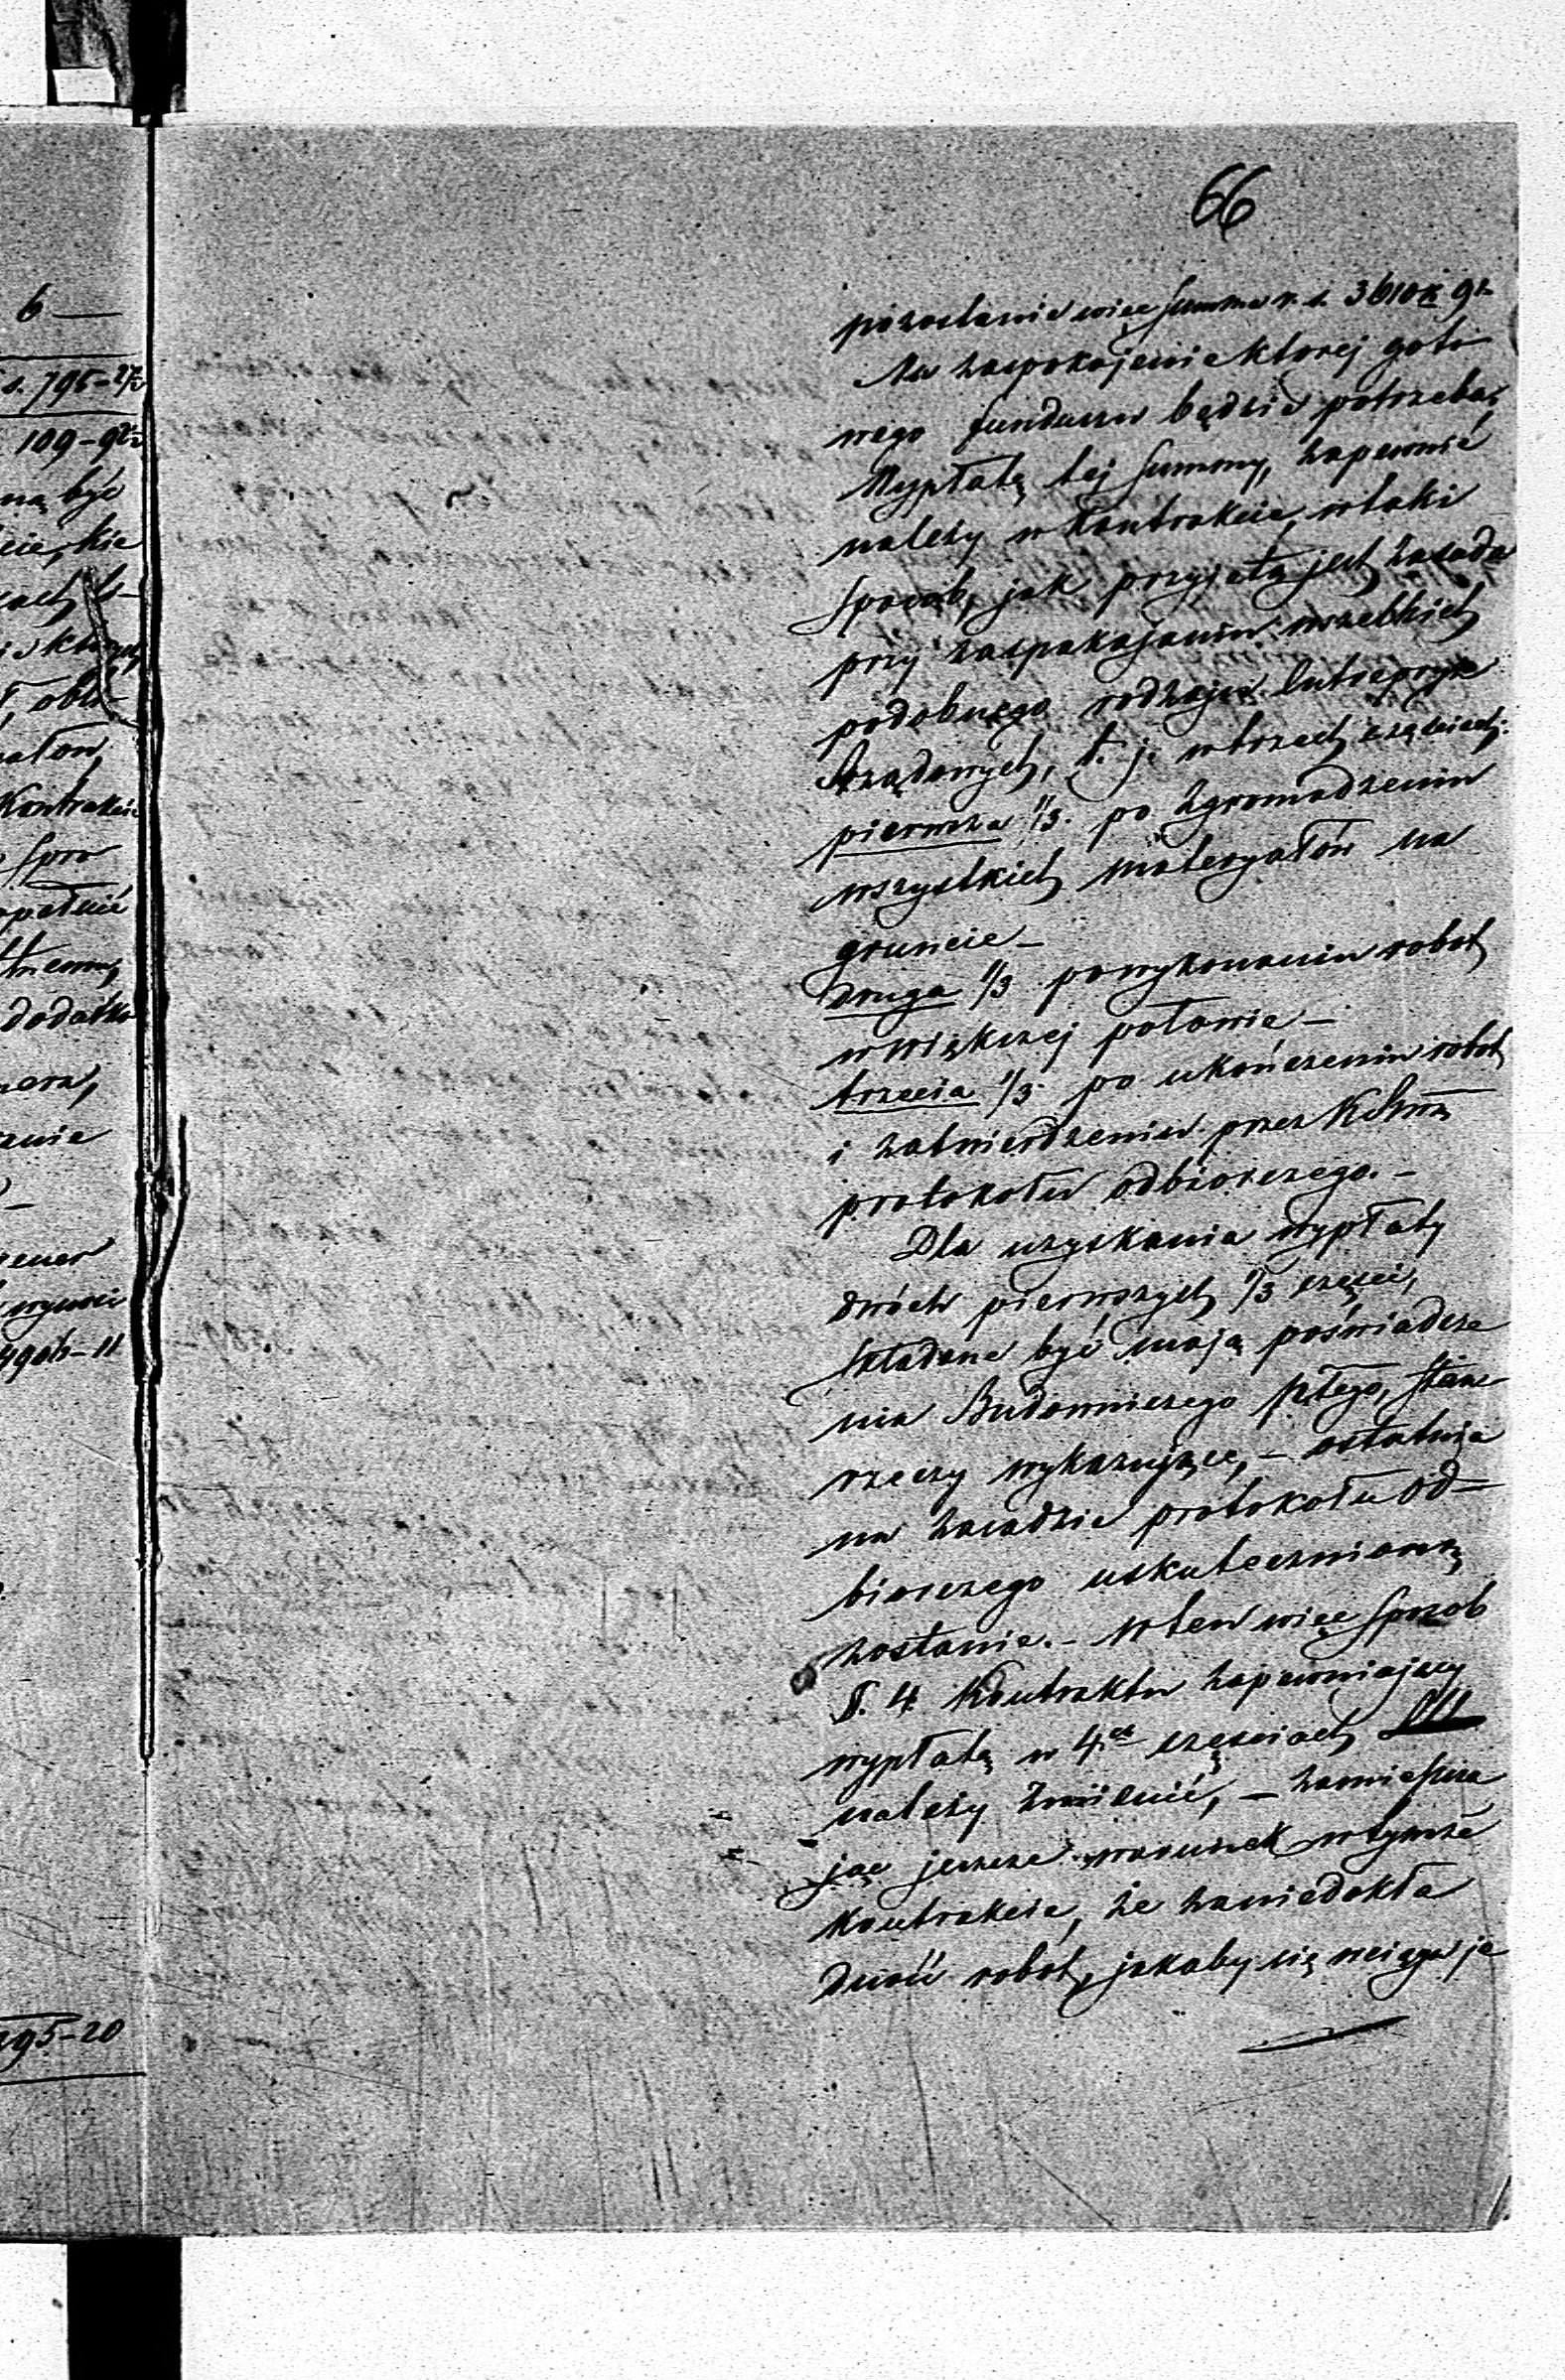 6 —
s. 795-27½
109-9½
ną być
cie, kie
obli-
Kontrakcie
Spro
dodatko
4906-11
295-20
66
pozostanie więc Summa r. s. 3610 k 9½
Na zaspokojenie ktorej goto-
wego funduszu będzie potrzeba,
Wypłatę tej Summy, zapewnić
należy w Kontrakcie, w taki
sposób, jak przyjętą jest zasada
przy zaspakajaniu wszelkich
podobnego rodzaju Entrepryz
Rządowych, t. j. w trzech częściach:
pierwsza 1/3. po zgromadzeniu
wszystkich materyałów na
gruncie –
druga 1/3 po wykonaniu robot
w większej połowie –
trzecia 1/3. po ukończeniu robot
i zatwierdzeniu przez
protokołu odbiorczego. –
Dla uzyskania wypłaty
dwóch pierwszych 1/3 części,
składane być mają poświadcze
nia Budowniczego Pttego, stan
rzeczy wykazujące, – ostatnia
na zasadzie protokołu od–
biorczego uskutecznioną
zostanie. – W ten więc sposob
§. 4 Kontraktu zapewniający
wypłatę w 4ch częściach
należy zmienić, – zamieszcza
jąc jeszcze warunek w tymże
Kontrakcie, że za niedokła
dność robot, jakaby się w ciągu je